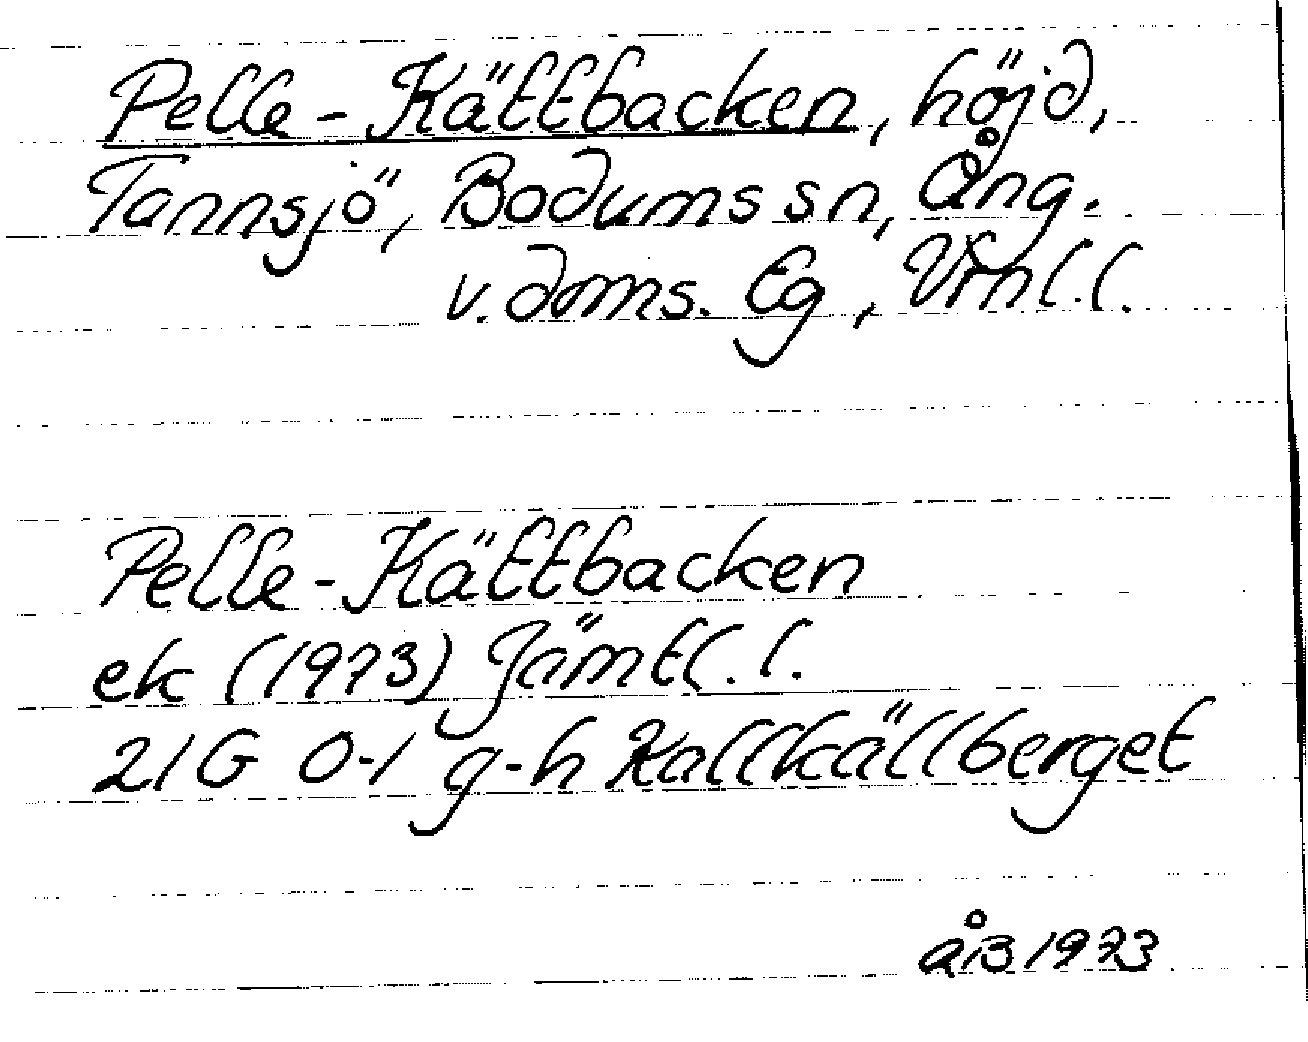 Pelle-Kättbacken, höjd,
Tannsjö, Bodums sn, Ång.
v. doms. Eg, Vrnl.l.
Pelle-Kättbacken
ek (1973) Jämtl.l.
21G 0-1 g-h Kallkällberget
åB 1973